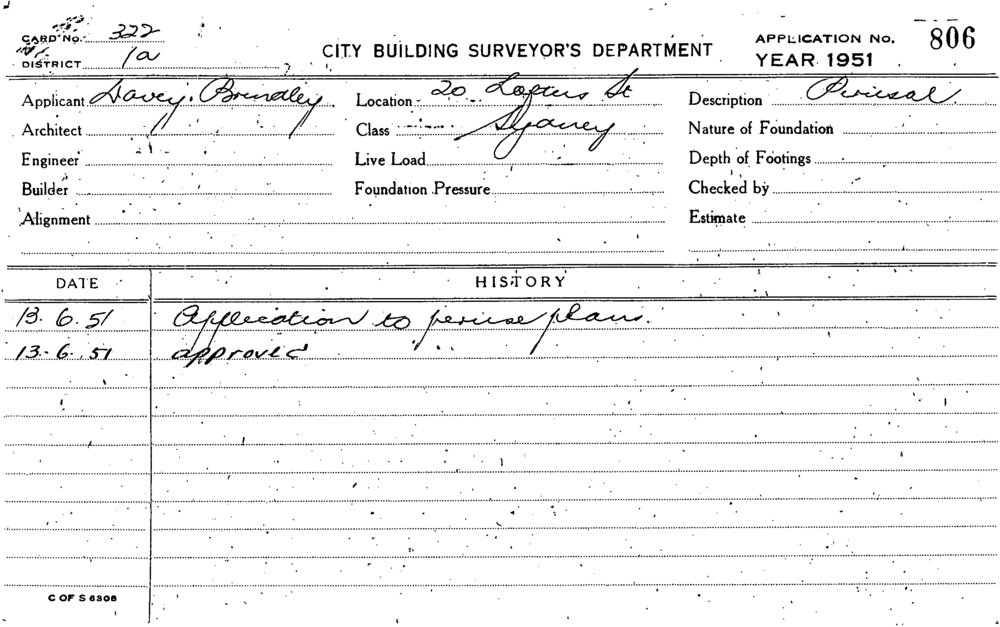 CARD No. 322
DISTRICT 1a
CITY BUILDING SURVEYOR'S DEPARTMENT
APPLICATION No. 806
YEAR 1951
Applicant Davey. Brindley Location 20 Loftus St Description Perusal
Architect Class Sydney Nature of Foundation
Engineer Live Load Depth of Footings
Builder Foundation Pressure Checked by
Alignment Estimate
DATE HISTORY
13.6.51 Application to peruse plans.
13.6.51 approved
C OF S 6308